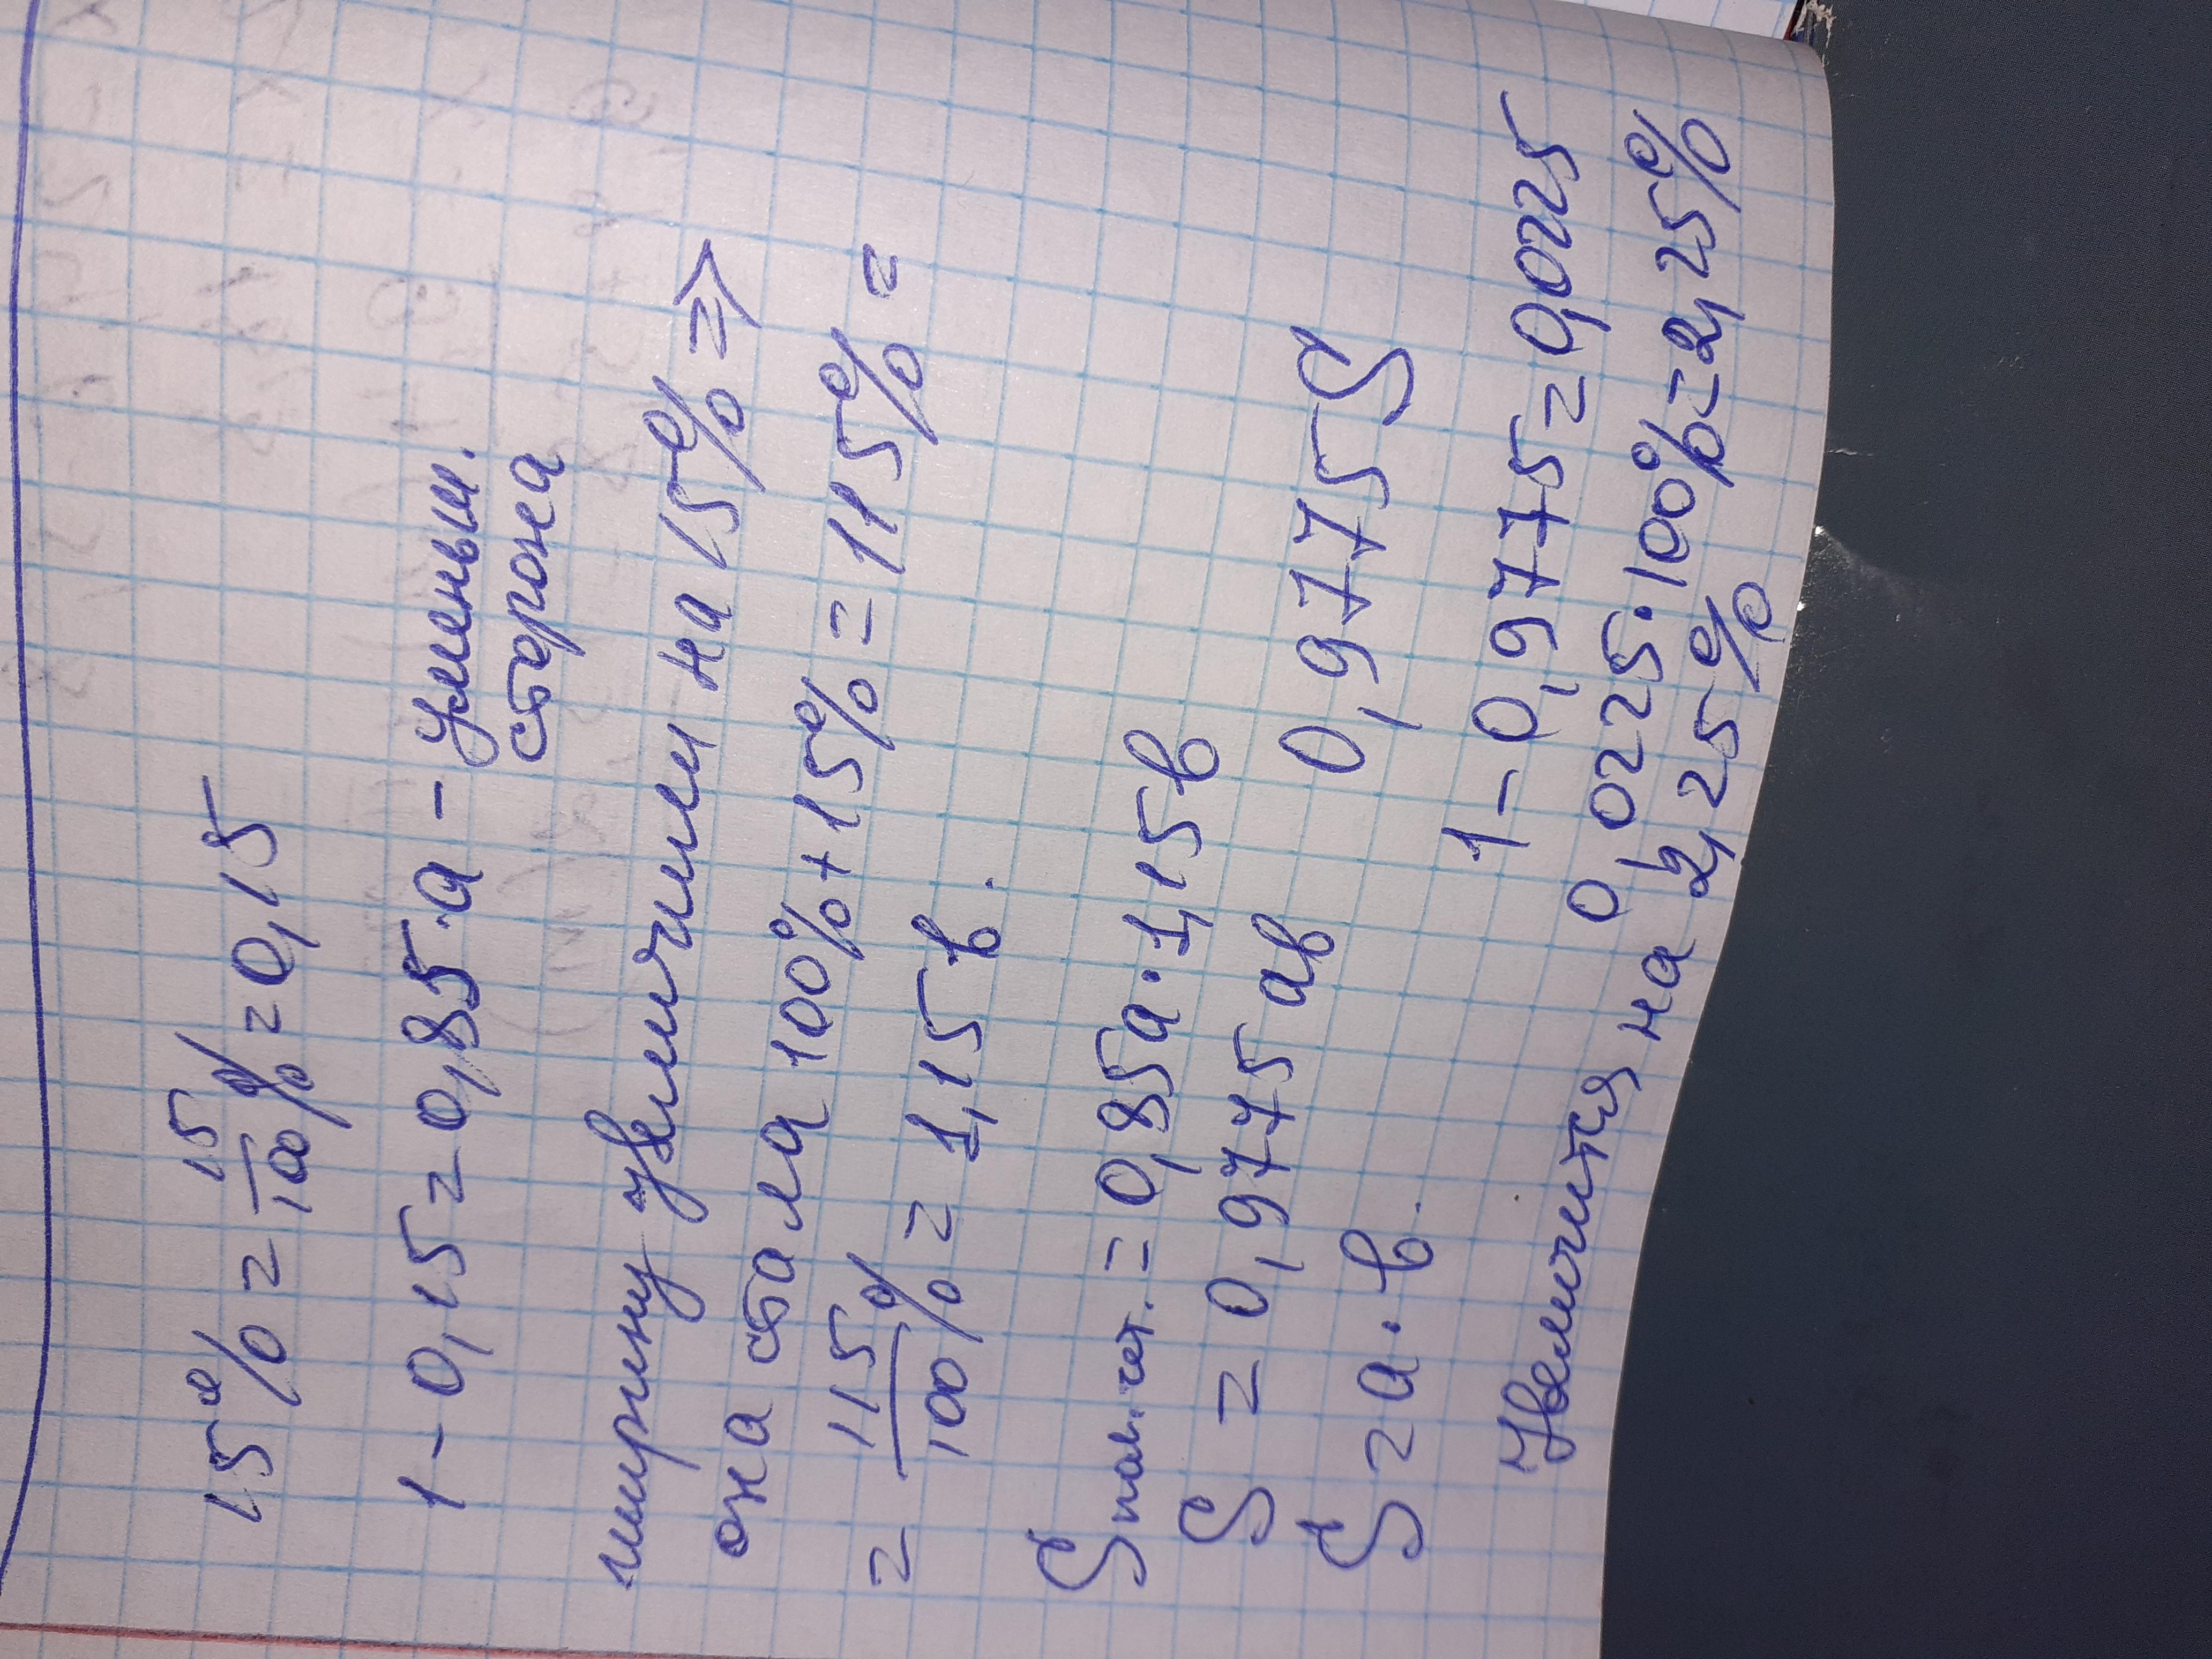 15% = 15/100% = 0,15
1 - 0,15 = 0,85·a - уменьш.
сторона
ширину увеличили на 15% =>
она стала 100% + 15% = 115% =
= 115/100% = 1,15 в.
S пов. чет. = 0,85a · 1,15в
S = 0,9775 aв
S = a · в. 0,9775S
1 - 0,9775 = 0,0025
0,0225 · 100% = 2,25%
Увеличится на 2,25%